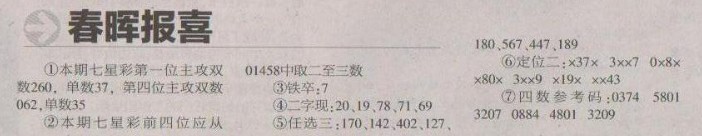 春晖报喜
①本期七星彩第一位主攻双
数260，单数37，第四位主攻双数
062,单数35
②本期七星彩前四位应从
01458中取二至三数
③铁卒:7
④二字现:20、19、78、71、69
⑤任选三:170、142、402、127、
180、567、447、189
⑥定位二:×37× 3××7 0×8×
×80× 3××9 ×19× ××43
⑦四数参考码:0374 5801
3207 0884 4801 3209